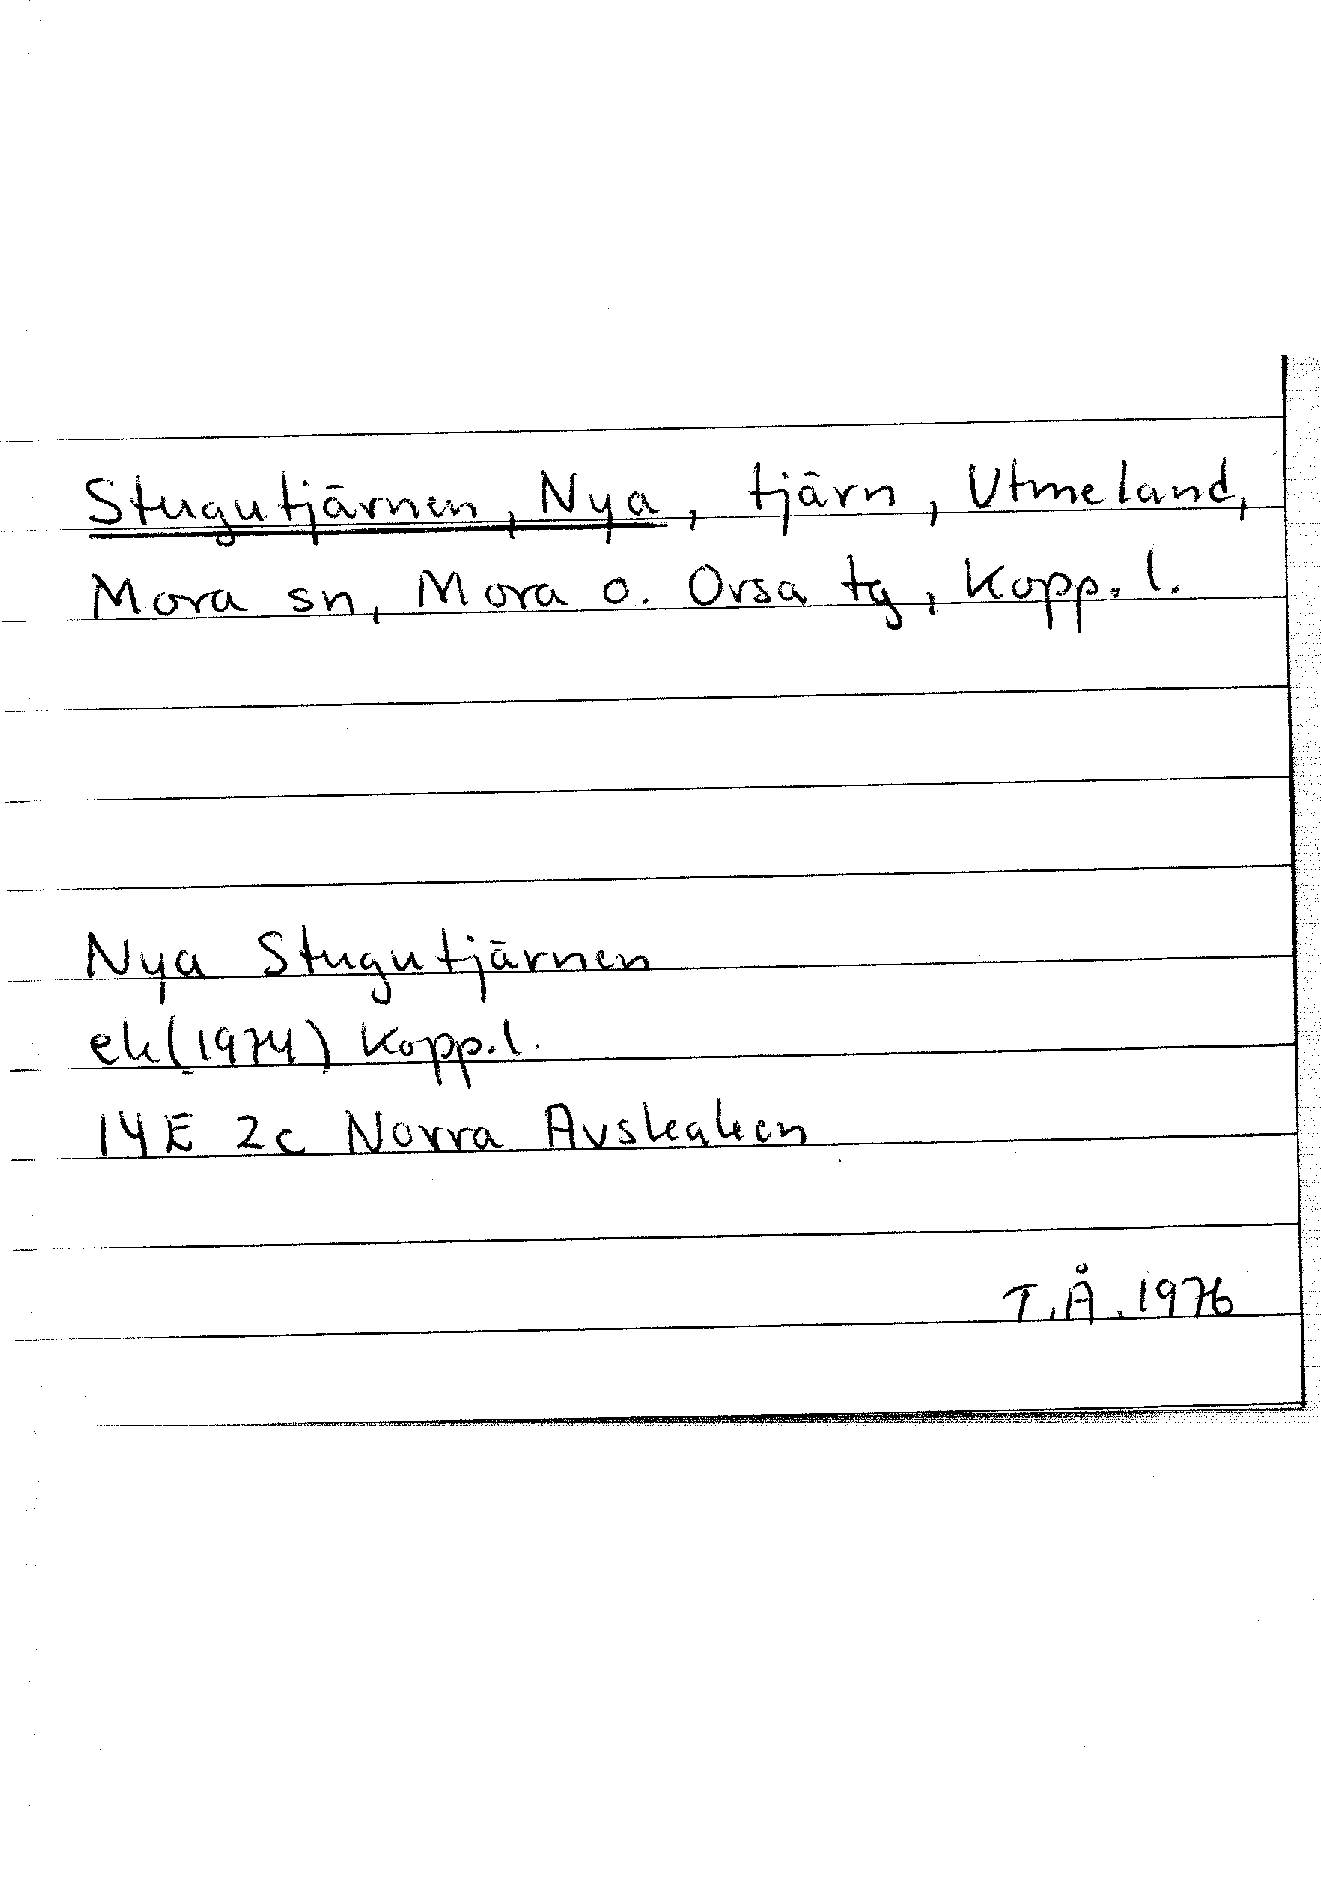 Stugutjärnen, Nya, tjärn, Utmeland,
Mora sn, Mora o. Orsa tg, Kopp. l.
Nya Stugutjärnen
ek (1974) Kopp.l.
14E 2c Norra Avskaken
T.Å. 1976